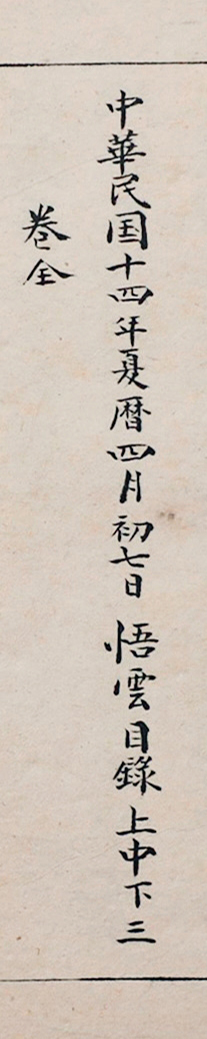 中華民国十四年夏曆四月初七日悟雲目錄上中下三
卷全